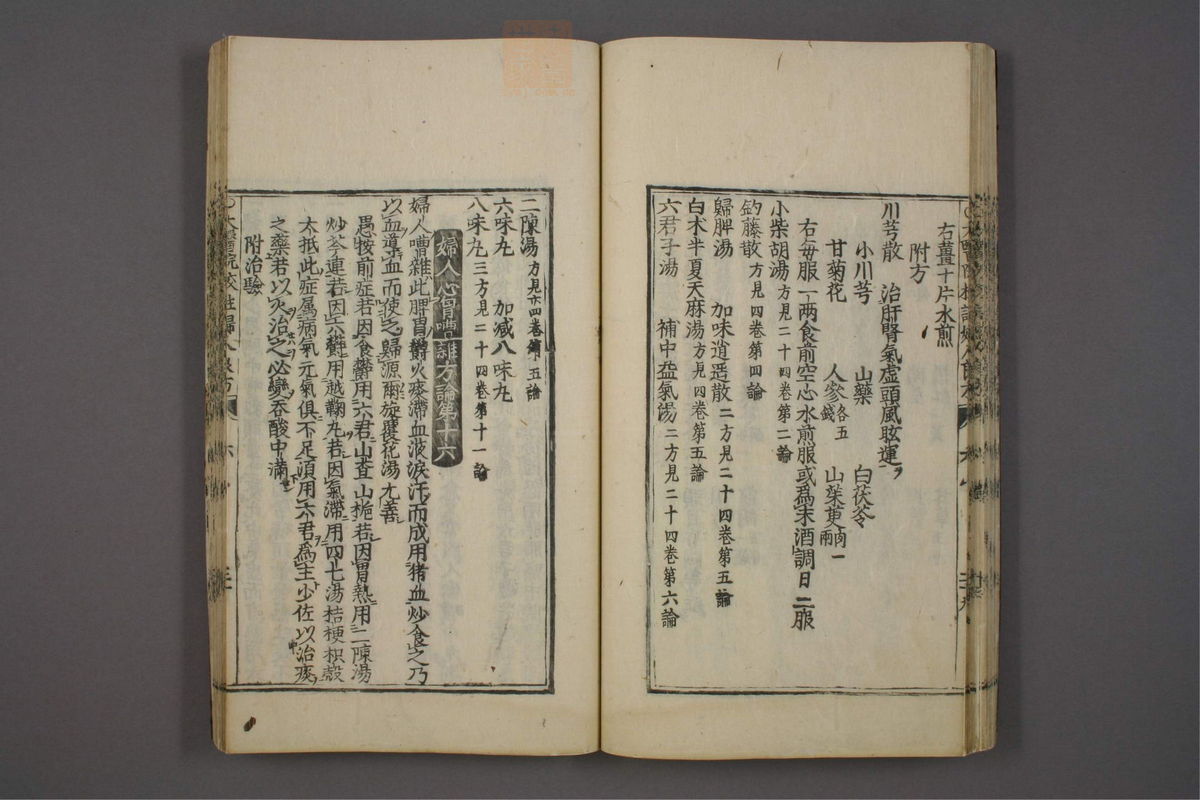 右薑十片水煎
附方
川芎散　治肝腎氣虛頭風眩運
小川芎　山藥　白茯苓
甘菊花　人參各五錢　山茱萸肉一兩
右每服一兩食前空心水煎服或爲末酒調日二服
小柴胡湯方見二十四卷第二論
釣藤散方見四卷第四論
歸脾湯　加味逍遥散二方見二十四卷第五論
白朮半夏天麻湯方見四卷第五論
六君子湯　補中益氣湯二方見二十四卷第六論
二陳湯方見六四卷第五論
六味丸　加減八味丸
八味丸三方見二十四卷第十一論
婦人心胷嘈雜方論第十六
婦人嘈雜此脾胃鬱火痰滯血液淚汗而成用猪血炒食之乃
以血導血而使之歸源爾旋覆花湯尤善
愚按前症若因食鬱用六君山查山梔若因胃熱用二陳湯
炒芩連若因六鬱用越鞠丸若因氣滯用四七湯桔梗枳殼
大抵此症属病氣元氣俱不足須用六君爲主少佐以治痰
之藥若以火治之必變吞酸中滿
附治驗